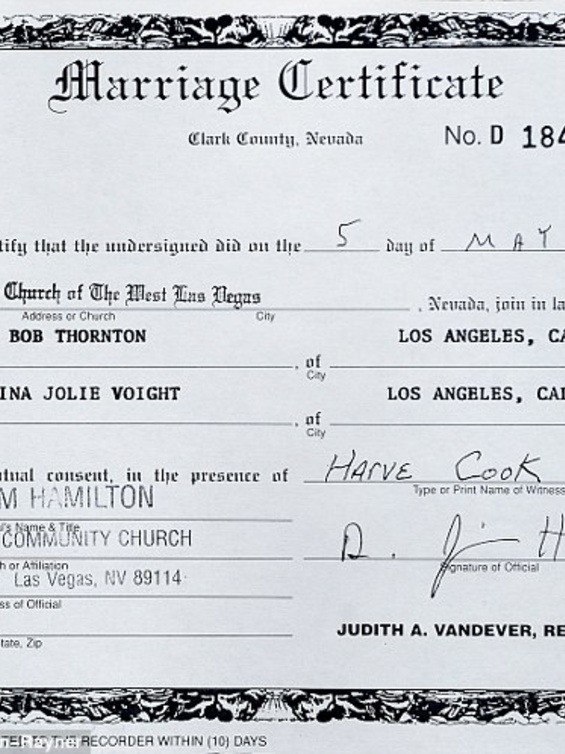 Marriage Certificate
Clark County, Nevada
No. D 184
tify that the undersigned did on the 5 day of MAY
Church of The West Las Vegas
Address or Church City
, Nevada, join in la
BOB THORNTON LOS ANGELES, CA
, of
City
INA JOLIE VOIGHT LOS ANGELES, CAL
, of
City
utual consent, in the presence of HARVE COOK
Type or Print Name of Witness
M HAMILTON
l's Name & Title
COMMUNITY CHURCH
D. Jim H
h or Affiliation Signature of Official
Las Vegas, NV 89114
ss of Official
JUDITH A. VANDEVER, RE
tate, Zip
RECORDER WITHIN (10) DAYS